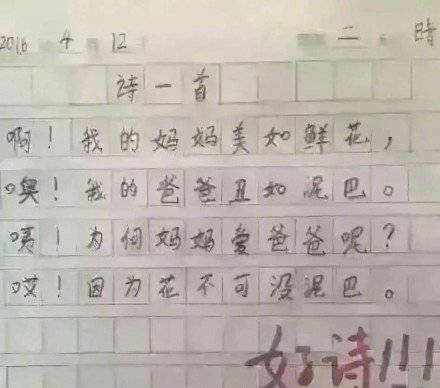 2016 4 12 二 時
诗一首
啊！我的妈妈美如鲜花，
噢！我的爸爸丑如泥巴。
咦！为何妈妈爱爸爸呢？
哎！因为花不可没泥巴。
好诗!!!